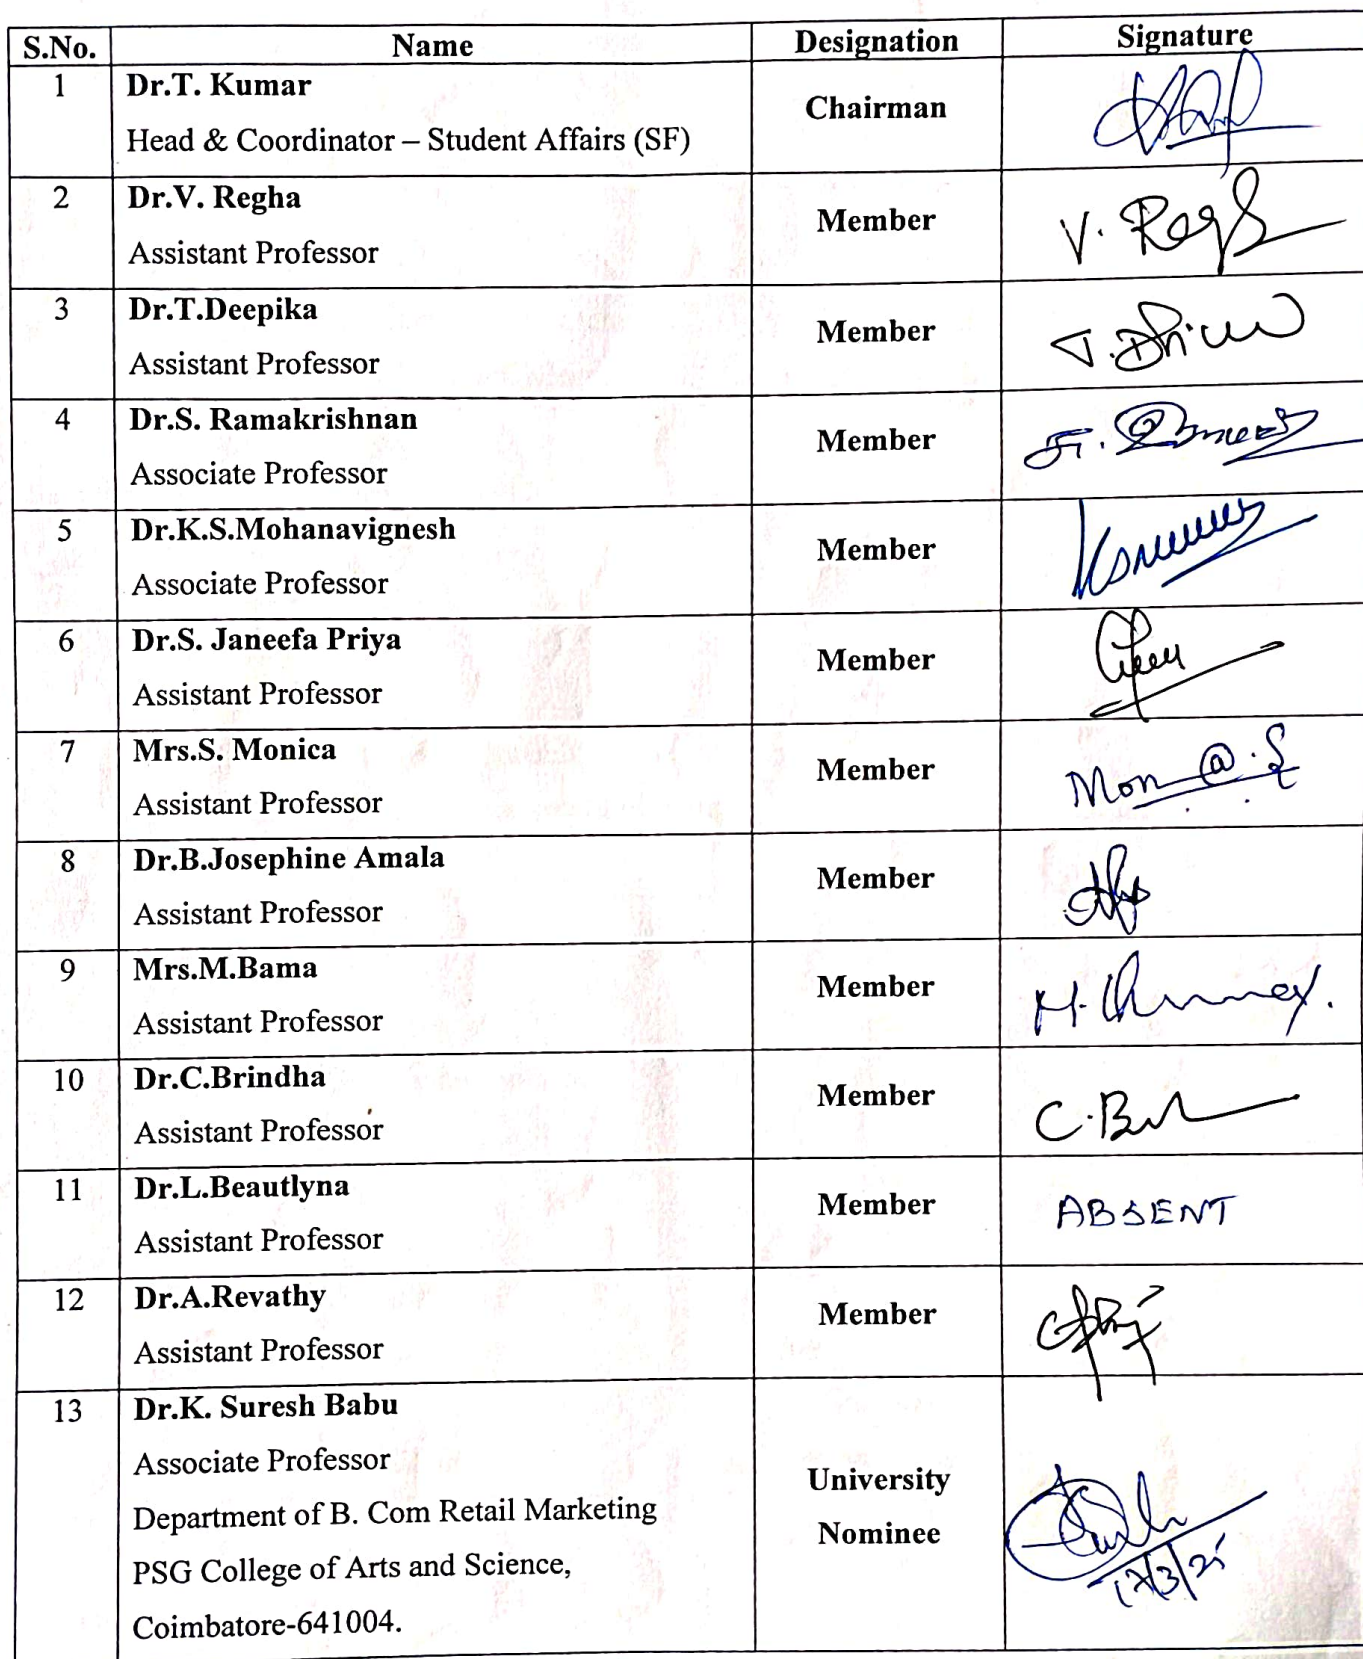 S.No. Name Designation Signature
1 Dr.T. Kumar
Head & Coordinator – Student Affairs (SF)
Chairman
2 Dr.V. Regha
Assistant Professor
Member
V. Reg
3 Dr.T.Deepika
Assistant Professor
Member
4 Dr.S. Ramakrishnan
Associate Professor
Member
5 Dr.K.S.Mohanavignesh
Associate Professor
Member
6 Dr.S. Janeefa Priya
Assistant Professor
Member
7 Mrs.S. Monica
Assistant Professor
Member
8 Dr.B.Josephine Amala
Assistant Professor
Member
9 Mrs.M.Bama
Assistant Professor
Member
10 Dr.C.Brindha
Assistant Professor
Member
11 Dr.L.Beautlyna
Assistant Professor
Member
ABSENT
12 Dr.A.Revathy
Assistant Professor
Member
13 Dr.K. Suresh Babu
Associate Professor
Department of B. Com Retail Marketing
PSG College of Arts and Science,
Coimbatore-641004.
University
Nominee
17/3/25